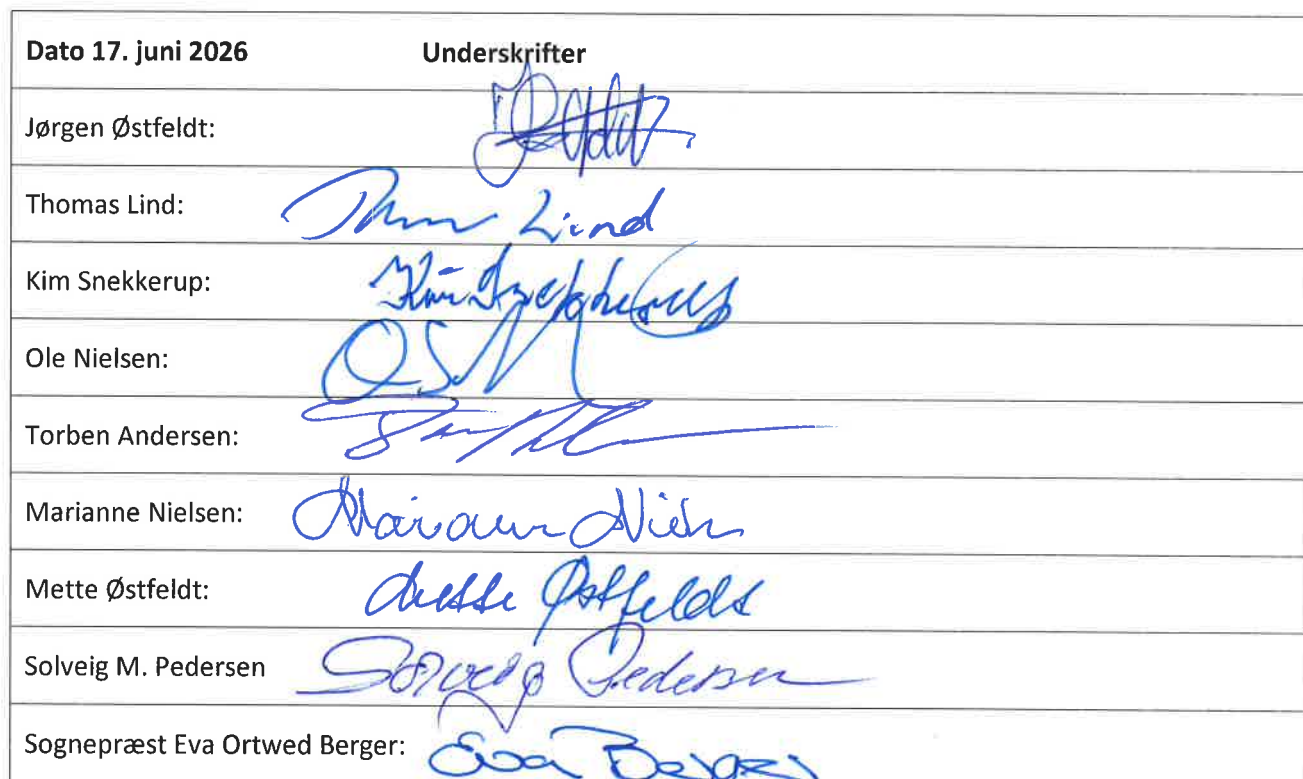 Dato 17. juni 2026 Underskrifter
Jørgen Østfeldt:
Thomas Lind: Thomas Lind
Kim Snekkerup: Kim Snekkerup
Ole Nielsen:
Torben Andersen:
Marianne Nielsen: Marianne Niels
Mette Østfeldt: Mette Østfeldt
Solveig M. Pedersen Solveig Pedersen
Sognepræst Eva Ortwed Berger: Eva Berger